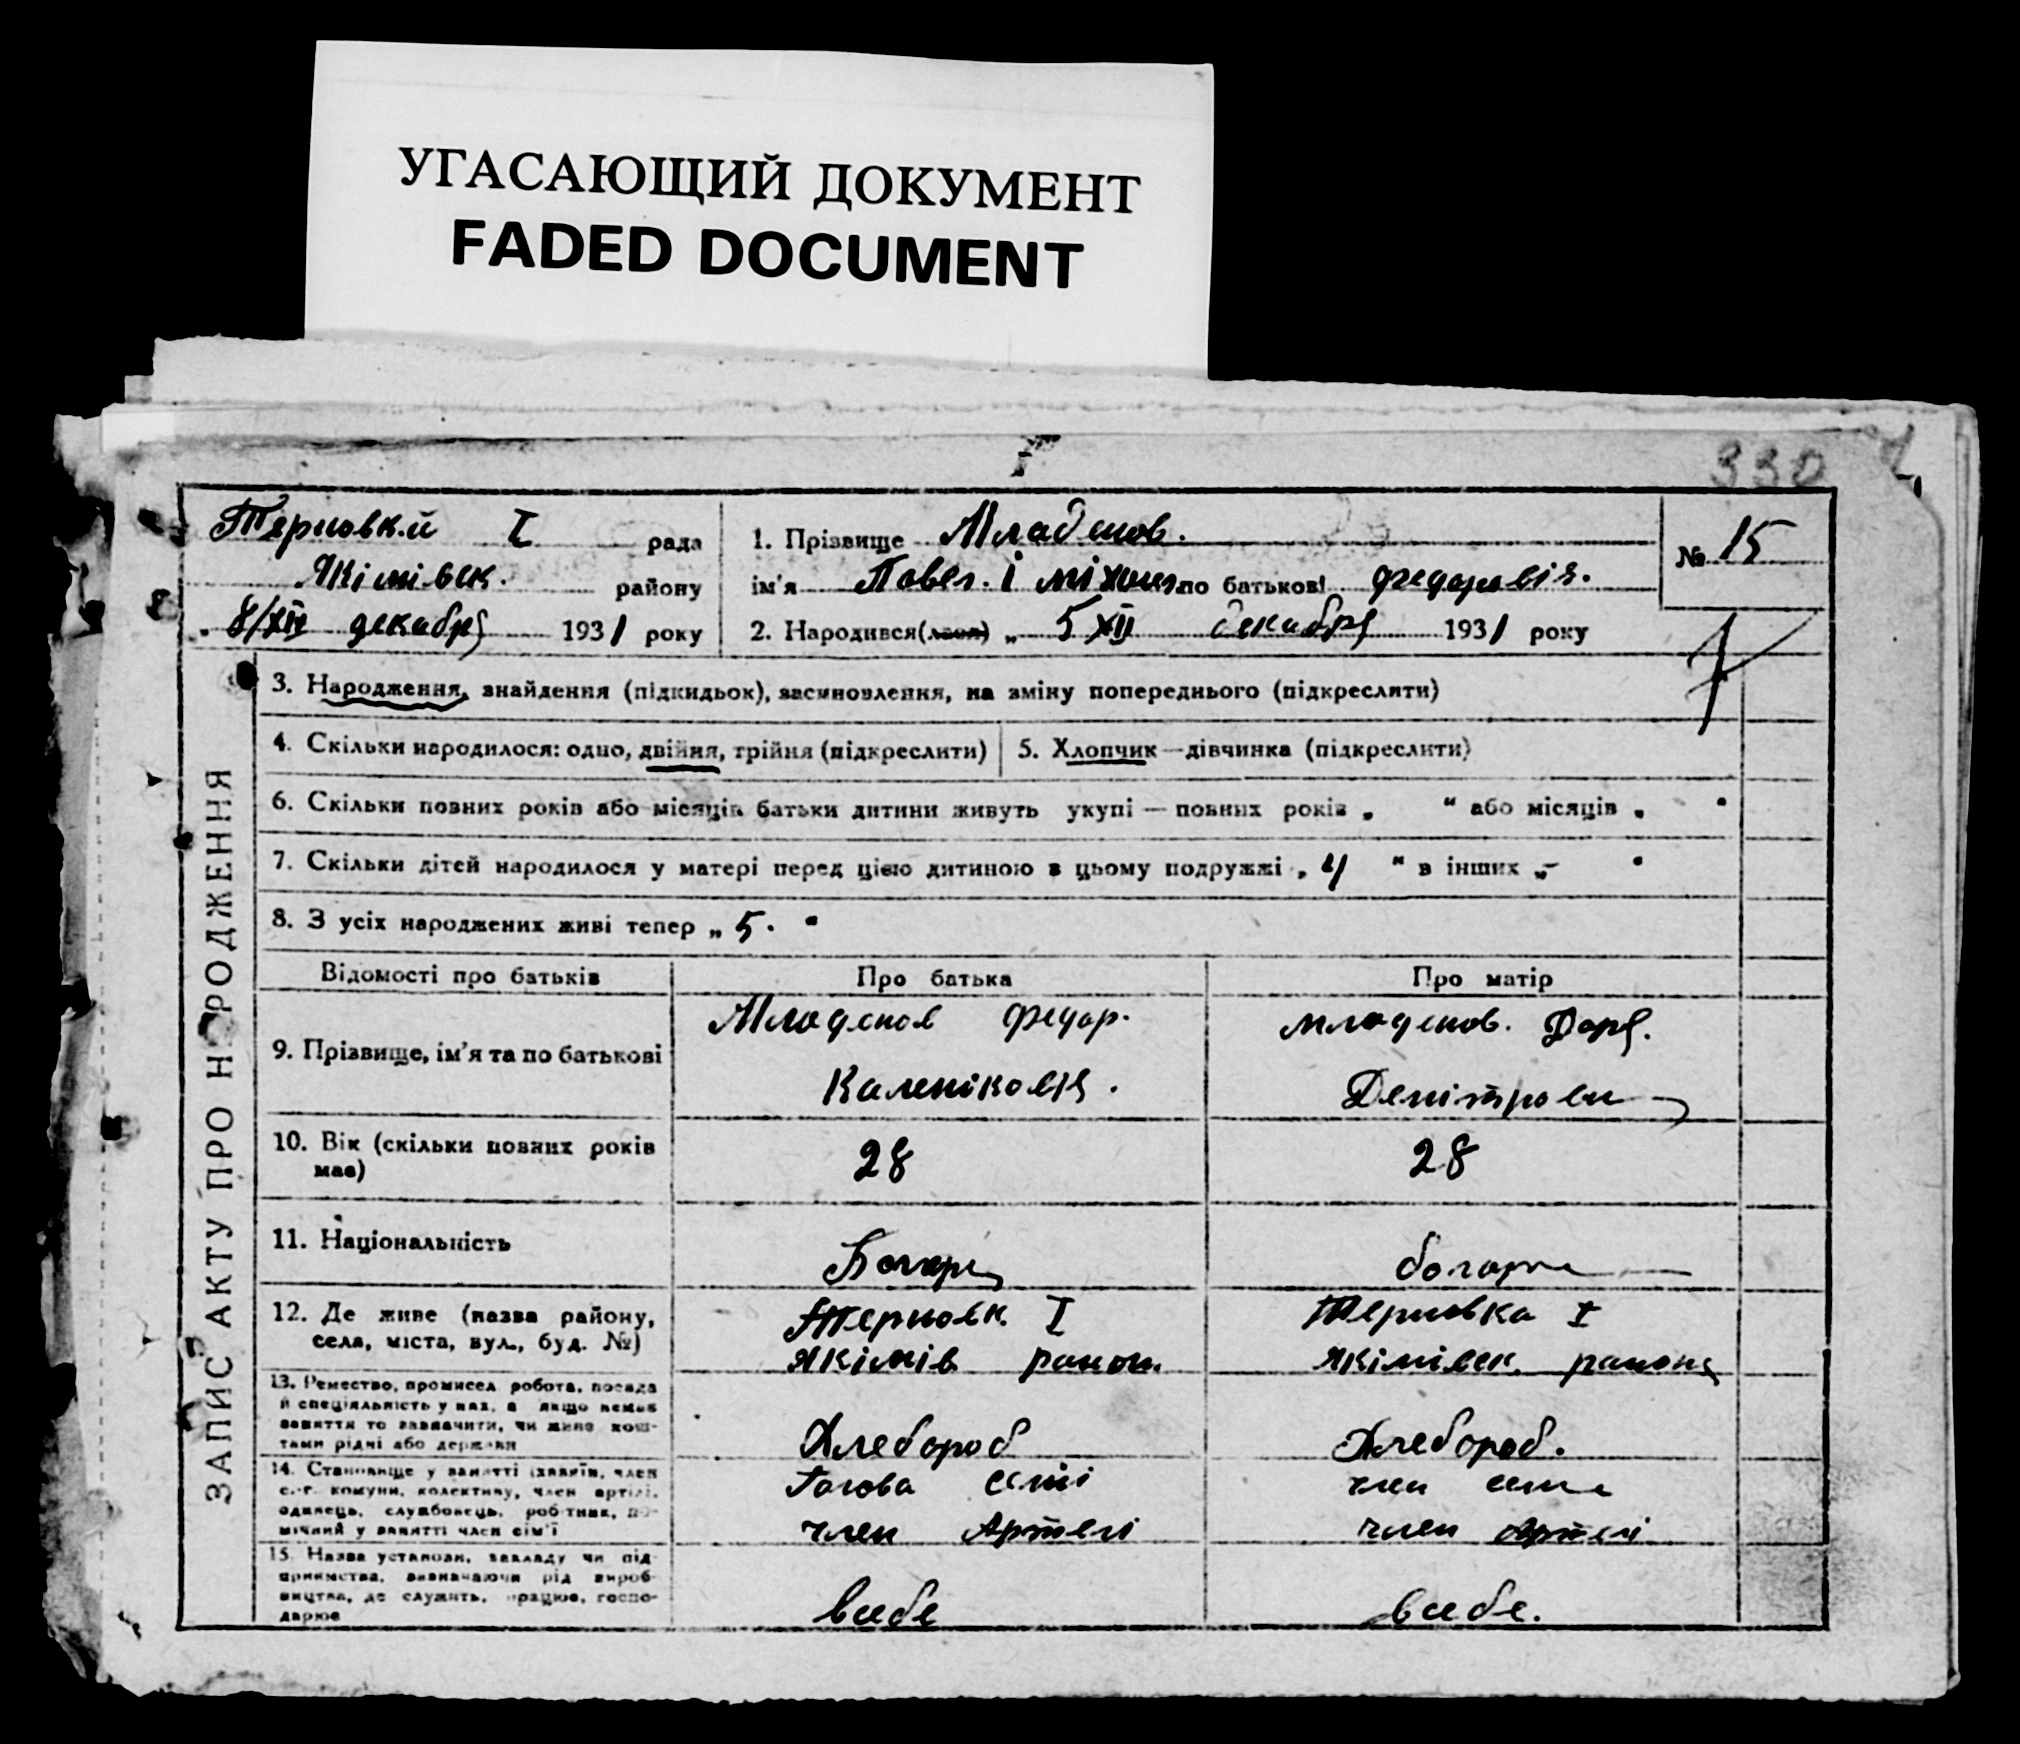 УГАСАЮЩИЙ ДОКУМЕНТ
FADED DOCUMENT
330
Терновкий I рада
Якімівск. району
„ 8/XII декабря 1931 року
1. Прізвище Младенов.
ім'я Павел. і міхаил по батькові Федоровія.
2. Народився(лася) „ 5 XII декабря 1931 року
№ 15
ЗАПИС АКТУ ПРО Н РОДЖЕННЯ
3. Народження, знайдення (підкидьок), засиновлення, на зміну попереднього (підкреслити)
4. Скільки народилося: одно, двійня, трійня (підкреслити)
5. Хлопчик—дівчинка (підкреслити)
6. Скільки повних років або місяців батьки дитини живуть укупі — повних років „ “ або місяців „ “
7. Скільки дітей народилося у матері перед цією дитиною в цьому подружжі „ 4 “ в інших „ - “
8. З усіх народжених живі тепер „ 5. “
Відомості про батьків Про батька Про матір
9. Прізвище, ім'я та по батькові
Младенов Федор.
младенов. Даря.
10. Вік (скільки повних років має)
28
28
11. Національність
Болгари
болгарка
12. Де живе (назва району,
села, міста, вул., буд. №)
Терновк. I
Якімів района
Терновка I
Якімівск. района
13. Ремество, промисел робота, посада
й спеціяльність у них, а якщо немає
заняття то зазначити, чи живе кош-
тами рідні або держави
Хлебороб
Хлебороб.
14. Становище у занятті (хазяїн, член
с.-г. комуни, колективу, член артілі,
одинець, службовець, робітник, по-
мічний у занятті член сім'ї
Голова семі
член Артелі
член семи
член Артелі
15. Назва установи, закладу чи під-
приємства, визначаючи рід вироб-
ництва, де служить, працює, госпо-
дарює
всебе
всебе.